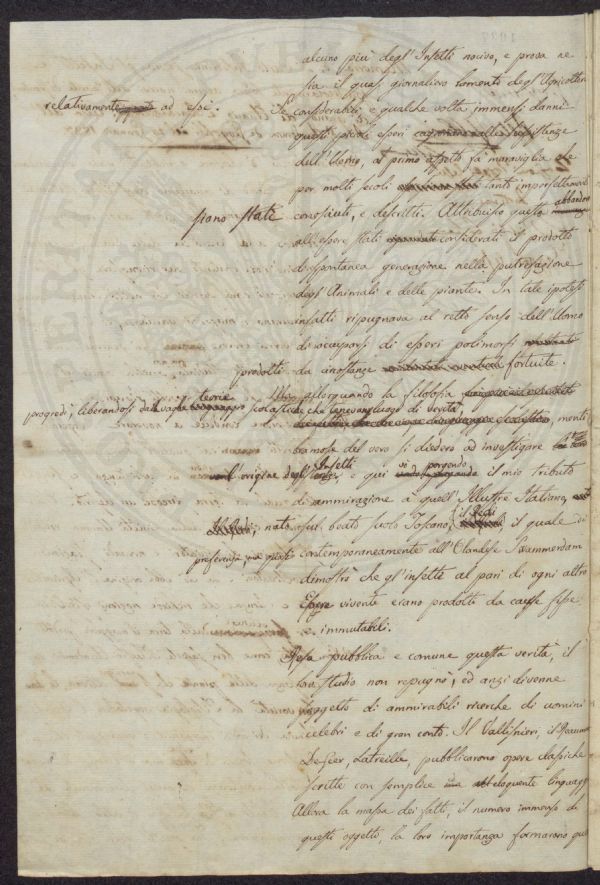 alcuno più degl'Insetti nocivo, e prova ne
sia il quasi giornaliero lamento degl'Agricoltori
relativamente ad essi. Se considerabili e qualche volta immensi danni
questi piccoli esseri cagionano alle sussistenze
dell'Uomo, a primo aspetto fa maraviglia che
per molti secoli tanto imperfettamente
siano stati conosciuti, e descritti. Attribuisco questo abbandono
all'essere stati considerati il prodotto
di spontanea generazione nella putrefazione
degl'Animali e delle piante. In tale ipotesi
infatti ripugnava al retto senso dell'Uomo
di occuparsi di esseri polimorfi
prodotti da circostanze fortuite.
Ma allorquando la filosofia
progredì, liberandosi dalle vaghe teorie scolastiche che tenevan luogo di verità,
menti
bramose del vero si diedero ad investigare
l'origine degl'Insetti, e qui vo porgendo il mio tributo
di ammirazione a quell'Illustre Italiano,
il Redi
nato sul beato suolo Toscano, il quale di
preferenza, e quasi contemporaneamente all'Olandese Swammerdam
dimostrò che gl'insetti al pari di ogni altro
Essere vivente erano prodotti da cause fisse
e immutabili.
Resa pubblica e comune questa verità, il
loro studio non repugnò, ed anzi divenne
soggetto di ammirabili ricerche di uomini
celebri e di gran conto. Il Vallisnieri, il Reaumur
DeGeer, Latreille, pubblicarono opere classiche
scritte con semplice ed eloquente linguaggio
Allora la massa dei fatti, il numero immenso di
questi oggetti, la loro importanza formarono